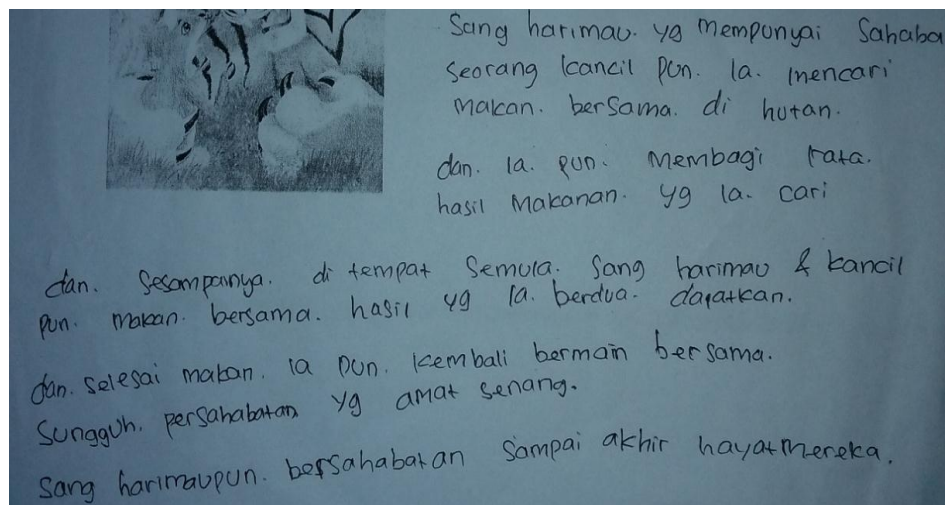 Sang harimau. yg mempunyai Sahaba
seorang kancil pun. Ia. mencari
makan. bersama. di hutan.
dan. Ia. pun. membagi rata.
hasil makanan. yg Ia. cari
dan. Sesampainya. di tempat Semula. Sang harimau & kancil
pun. makan. bersama. hasil yg Ia. berdua. dapatkan.
dan. selesai makan. Ia pun. kembali bermain bersama.
Sungguh. persahabatan yg amat senang.
Sang harimaupun. bersahabatan sampai akhir hayat mereka.